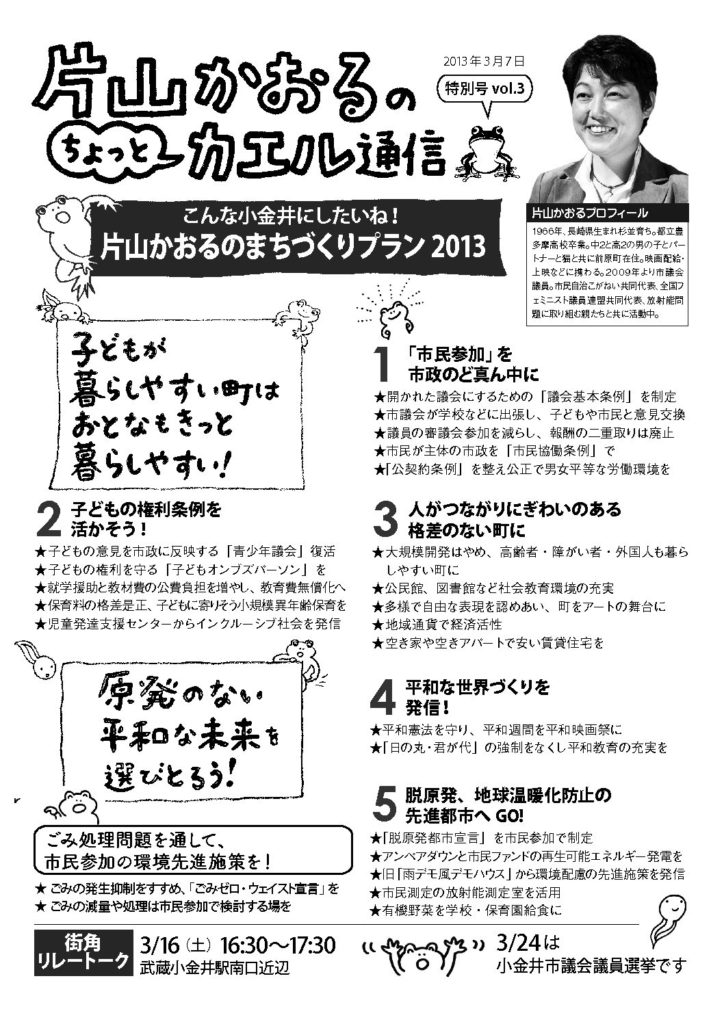 片山かおるの
ちょっと
カエル通信
2013年3月7日
特別号 vol.3
片山かおるプロフィール
1966年、長崎県生まれ杉並育ち。都立豊
多摩高校卒業。中2と高2の男の子とパ
ートナーと猫と共に前原町在住。映画配給・
上映などに携わる。2009年より市議会
議員。市民自治こがねい共同代表、全国フ
ェミニスト議員連盟共同代表、放射能問
題に取り組む親たちと共に活動中。
こんな小金井にしたいね！
片山かおるのまちづくりプラン 2013
子どもが
暮らしやすい町は
おとなもきっと
暮らしやすい！
1 「市民参加」を
市政のど真ん中に
★開かれた議会にするための「議会基本条例」を制定
★市議会が学校などに出張し、子どもや市民と意見交換
★議員の審議会参加を減らし、報酬の二重取りは廃止
★市民が主体の市政を「市民協働条例」で
★「公契約条例」を整え公正で男女平等な労働環境を
2 子どもの権利条例を
活かそう！
★子どもの意見を市政に反映する「青少年議会」復活
★子どもの権利を守る「子どもオンブズパーソン」を
★就学援助と教材費の公費負担を増やし、教育費無償化へ
★保育料の格差是正、子どもに寄りそう小規模異年齢保育を
★児童発達支援センターからインクルーシブ社会を発信
3 人がつながりにぎわいのある
格差のない町に
★大規模開発はやめ、高齢者・障がい者・外国人も暮ら
しやすい町に
★公民館、図書館など社会教育環境の充実
★多様で自由な表現を認めあい、町をアートの舞台に
★地域通貨で経済活性
★空き家や空きアパートで安い賃貸住宅を
原発のない
平和な未来を
選びとろう！
4 平和な世界づくりを
発信！
★平和憲法を守り、平和週間を平和映画祭に
★「日の丸・君が代」の強制をなくし平和教育の充実を
ごみ処理問題を通して、
市民参加の環境先進施策を！
★ごみの発生抑制をすすめ、「ごみゼロ・ウェイスト宣言」を
★ごみの減量や処理は市民参加で検討する場を
5 脱原発、地球温暖化防止の
先進都市へ GO!
★「脱原発都市宣言」を市民参加で制定
★アンペアダウンと市民ファンドの再生可能エネルギー発電を
★旧「雨デモ風デモハウス」から環境配慮の先進施策を発信
★市民測定の放射能測定室を活用
★有機野菜を学校・保育園給食に
街角
リレートーク
3/16（土）16:30～17:30
武蔵小金井駅南口近辺
3/24は
小金井市議会議員選挙です